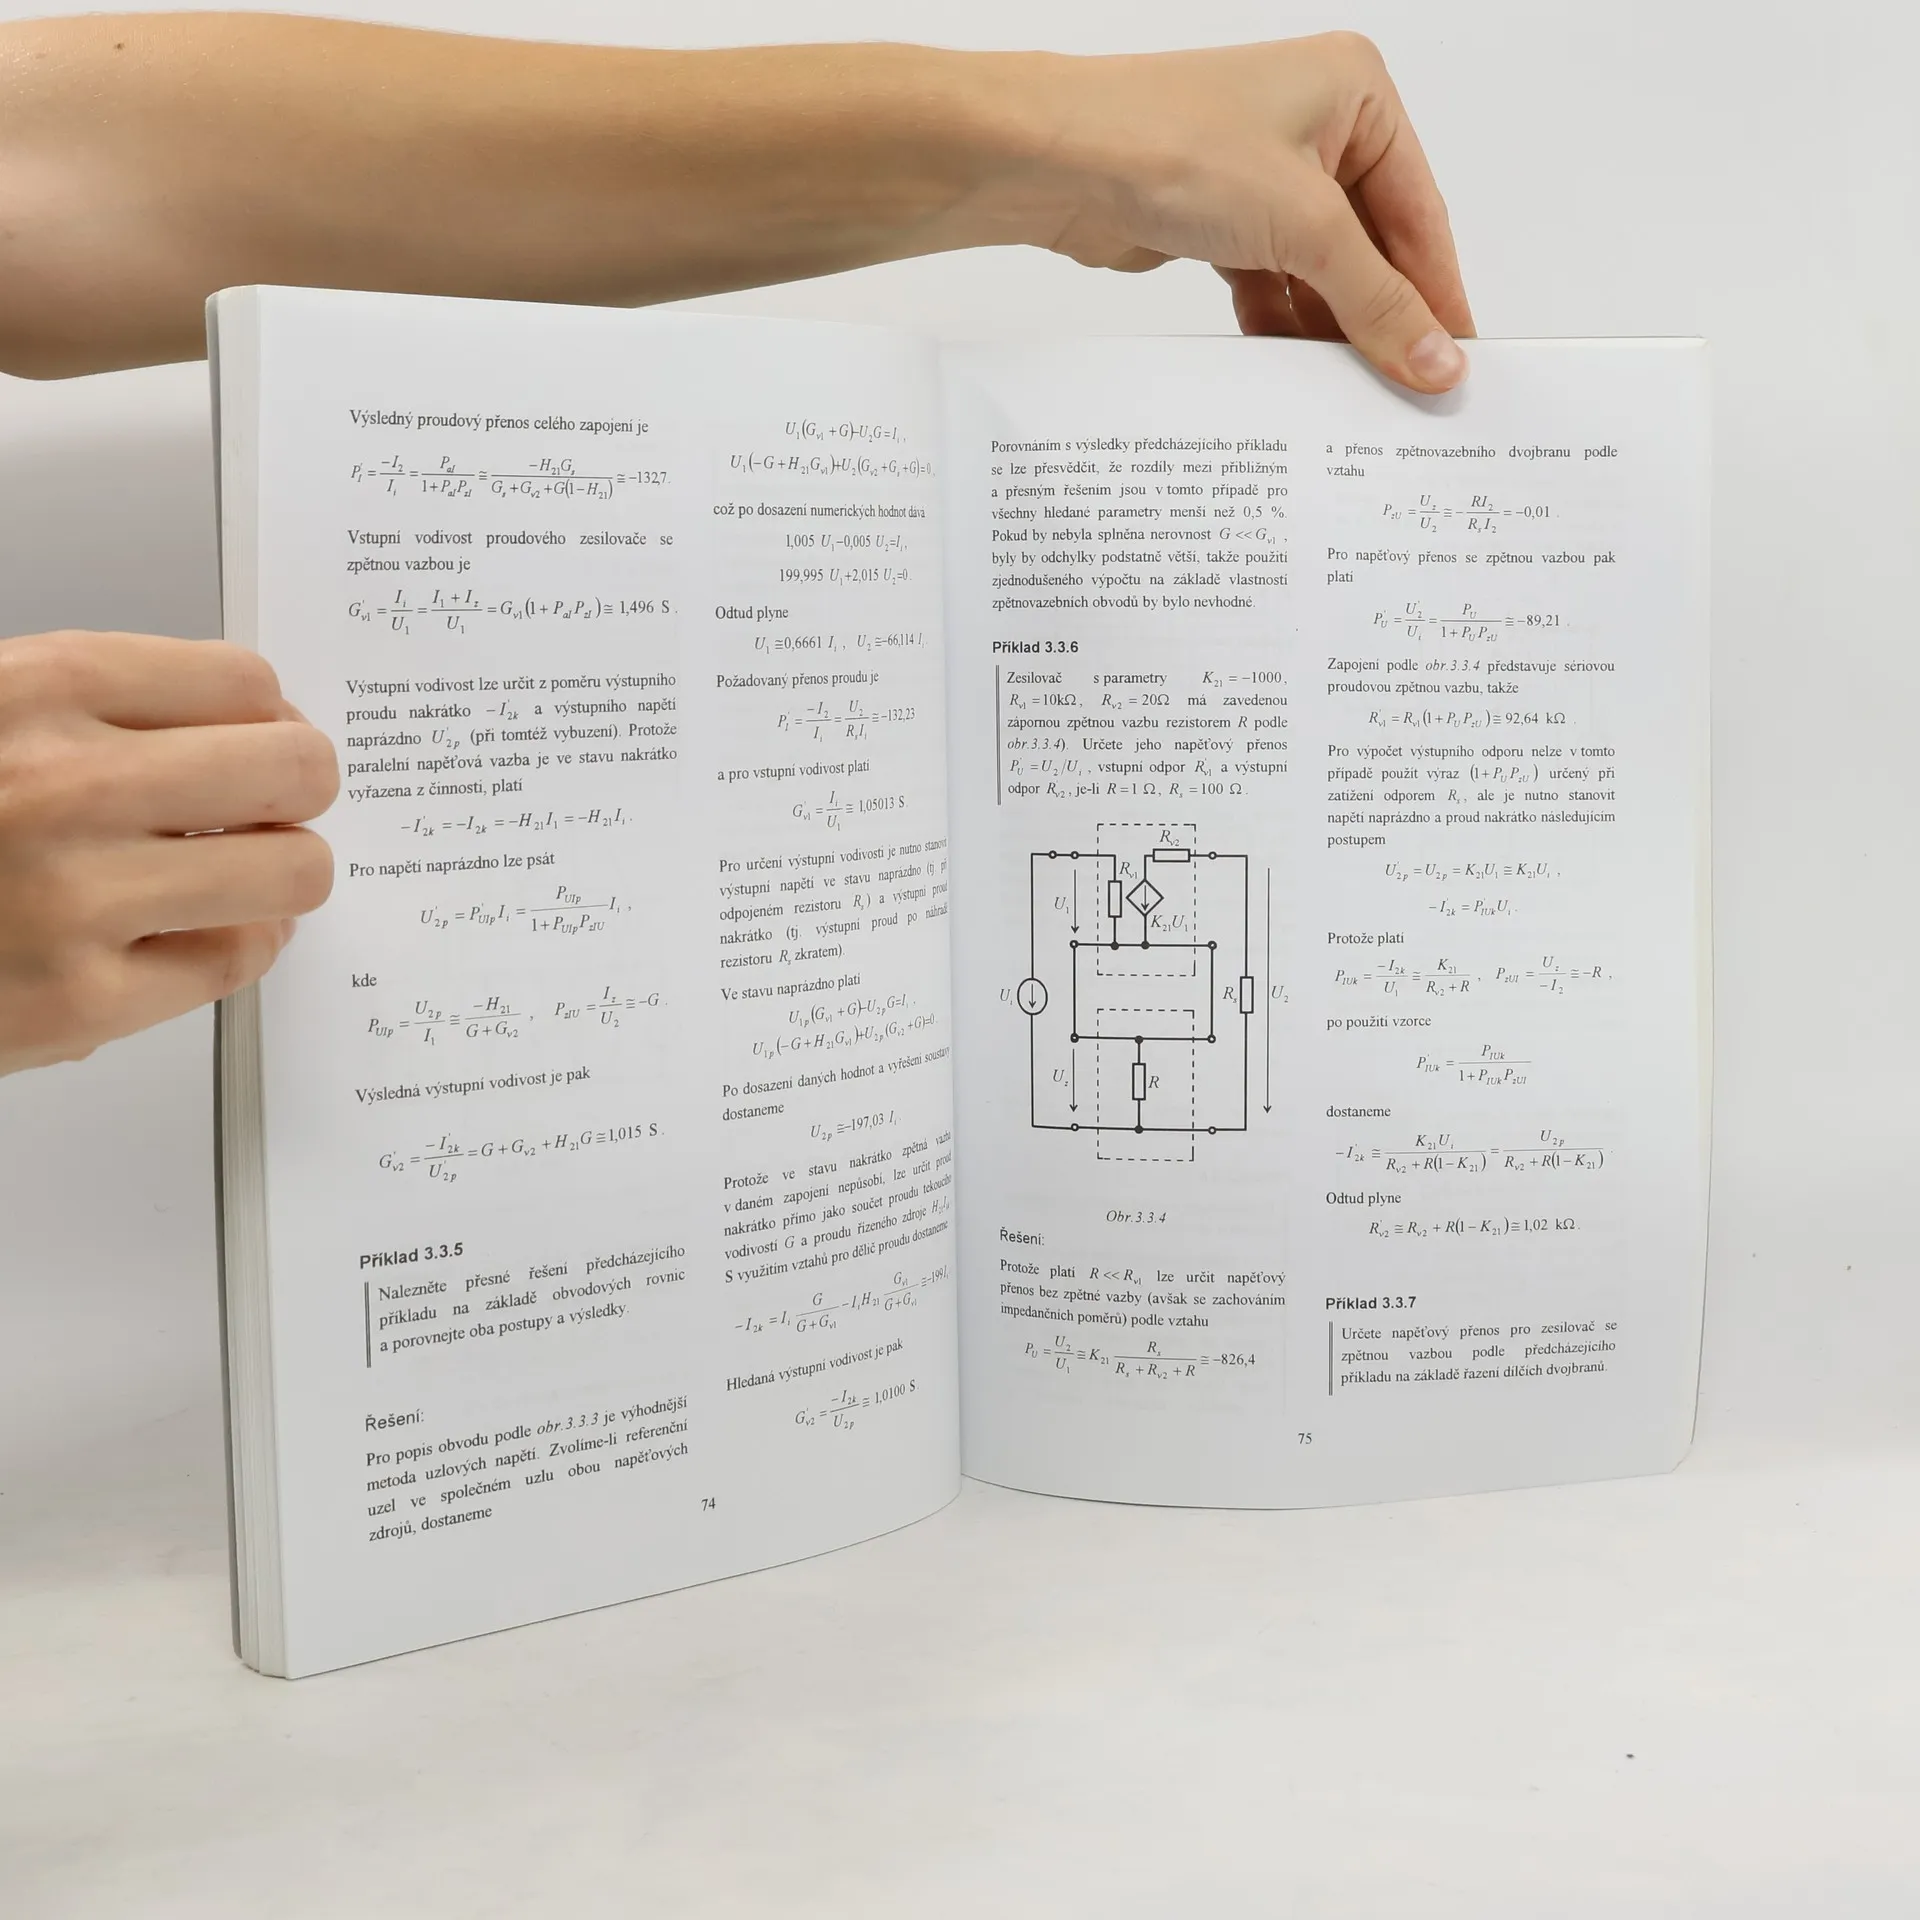 Výsledný proudový přenos celého zapojení je
P'_I = -I_2 / I_i = P_aI / (1 + P_aI P_zI) ≅ -H_21 G_s / (G_s + G_v2 + G(1 - H_21)) ≅ -132,7.
Vstupní vodivost proudového zesilovače se
zpětnou vazbou je
G'_v1 = I_i / U_1 = (I_1 + I_z) / U_1 = G_v1 (1 + P_aI P_zI) ≅ 1,496 S .
Výstupní vodivost lze určit z poměru výstupního
proudu nakrátko -I'_2k a výstupního napětí
naprázdno U'_2p (při tomtéž vybuzení). Protože
paralelní napěťová vazba je ve stavu nakrátko
vyřazena z činnosti, platí
-I'_2k = -I_2k = -H_21 I_1 = -H_21 I_i .
Pro napětí naprázdno lze psát
U'_2p = P'_UIp I_i = P_UIp / (1 + P_UIp P_zIU) I_i ,
kde
P_UIp = U_2p / I_1 ≅ -H_21 / (G + G_v2) , P_zIU = I_z / U_2 ≅ -G .
Výsledná výstupní vodivost je pak
G'_v2 = -I'_2k / U'_2p = G + G_v2 + H_21 G ≅ 1,015 S .
Příklad 3.3.5
Nalezněte přesné řešení předcházejícího
příkladu na základě obvodových rovnic
a porovnejte oba postupy a výsledky.
Řešení:
Pro popis obvodu podle obr.3.3.3 je výhodnější
metoda uzlových napětí. Zvolíme-li referenční
uzel ve společném uzlu obou napěťových
zdrojů, dostaneme
74
U_1 (G_v1 + G) - U_2 G = I_i ,
U_1 (-G + H_21 G_v1) + U_2 (G_v2 + G_s + G) = 0 .
což po dosazení numerických hodnot dává
1,005 U_1 - 0,005 U_2 = I_i ,
199,995 U_1 + 2,015 U_2 = 0 .
Odtud plyne
U_1 ≅ 0,6661 I_i , U_2 ≅ -66,114 I_i
Požadovaný přenos proudu je
P'_I = -I_2 / I_i = U_2 / (R_s I_i) ≅ -132,23
a pro vstupní vodivost platí
G'_v1 = I_i / U_1 ≅ 1,05013 S
Pro určení výstupní vodivosti je nutno stanovit
výstupní napětí ve stavu naprázdno (tj. při
odpojeném rezistoru R_s) a výstupní proud
nakrátko (tj. výstupní proud po náhradě
rezistoru R_s zkratem).
Ve stavu naprázdno platí
U_1p (G_v1 + G) - U_2p G = I_i ,
U_1p (-G + H_21 G_v1) + U_2p (G_v2 + G) = 0 .
Po dosazení daných hodnot a vyřešení soustavy
dostaneme
U_2p ≅ -197,03 I_i .
Protože ve stavu nakrátko zpětná vazba
v daném zapojení nepůsobí, lze určit proud
nakrátko přímo jako součet proudu tekoucího
vodivostí G a proudu řízeného zdroje
S využitím vztahů pro dělič proudu dostaneme
-I_2k = I_i G / (G + G_v1) - I_i H_21 G_v1 / (G + G_v1) ≅ -199 I_i
Hledaná výstupní vodivost je pak
G'_v2 = -I_2k / U_2p ≅ 1,0100 S
Porovnáním s výsledky předcházejícího příkladu
se lze přesvědčit, že rozdíly mezi přibližným
a přesným řešením jsou v tomto případě pro
všechny hledané parametry menší než 0,5 %.
Pokud by nebyla splněna nerovnost G << G_v1 ,
byly by odchylky podstatně větší, takže použití
zjednodušeného výpočtu na základě vlastností
zpětnovazebních obvodů by bylo nevhodné.
Příklad 3.3.6
Zesilovač s parametry K_21 = -1000,
R_v1 = 10kΩ, R_v2 = 20Ω má zavedenou
zápornou zpětnou vazbu rezistorem R podle
obr.3.3.4). Určete jeho napěťový přenos
P'_U = U_2/U_i , vstupní odpor R'_v1 a výstupní
odpor R'_v2 , je-li R = 1 Ω, R_s = 100 Ω .
R_v2
R_v1
U_1
K_21 U_1
U_i
R_s
U_2
U_z
R
Obr.3.3.4
Řešení:
Protože platí R << R_v1 lze určit napěťový
přenos bez zpětné vazby (avšak se zachováním
impedančních poměrů) podle vztahu
P_U = U_2 / U_1 ≅ K_21 R_s / (R_s + R_v2 + R) ≅ -826,4
75
a přenos zpětnovazebního dvojbranu podle
vztahu
P_zU = U_z / U_2 ≅ - RI_2 / (R_s I_2) = -0,01 .
Pro napěťový přenos se zpětnou vazbou pak
platí
P'_U = U'_2 / U_i = P_U / (1 + P_U P_zU) ≅ -89,21 .
Zapojení podle obr.3.3.4 představuje sériovou
proudovou zpětnou vazbu, takže
R'_v1 = R_v1 (1 + P_U P_zU) ≅ 92,64 kΩ .
Pro výpočet výstupního odporu nelze v tomto
případě použít výraz (1 + P_U P_zU) určený při
zatížení odporem R_s, ale je nutno stanovit
napětí naprázdno a proud nakrátko následujícím
postupem
U'_2p = U_2p = K_21 U_1 ≅ K_21 U_i ,
-I'_2k = P'_IUk U_i .
Protože platí
P_IUk = -I_2k / U_1 ≅ K_21 / (R_v2 + R) , P_zUI = U_z / -I_2 ≅ -R ,
po použití vzorce
P'_IUk = P_IUk / (1 + P_IUk P_zUI)
dostaneme
-I'_2k ≅ K_21 U_i / (R_v2 + R(1 - K_21)) = U_2p / (R_v2 + R(1 - K_21)) .
Odtud plyne
R'_v2 ≅ R_v2 + R(1 - K_21) ≅ 1,02 kΩ .
Příklad 3.3.7
Určete napěťový přenos pro zesilovač se
zpětnou vazbou podle předcházejícího
příkladu na základě řazení dílčích dvojbranů.